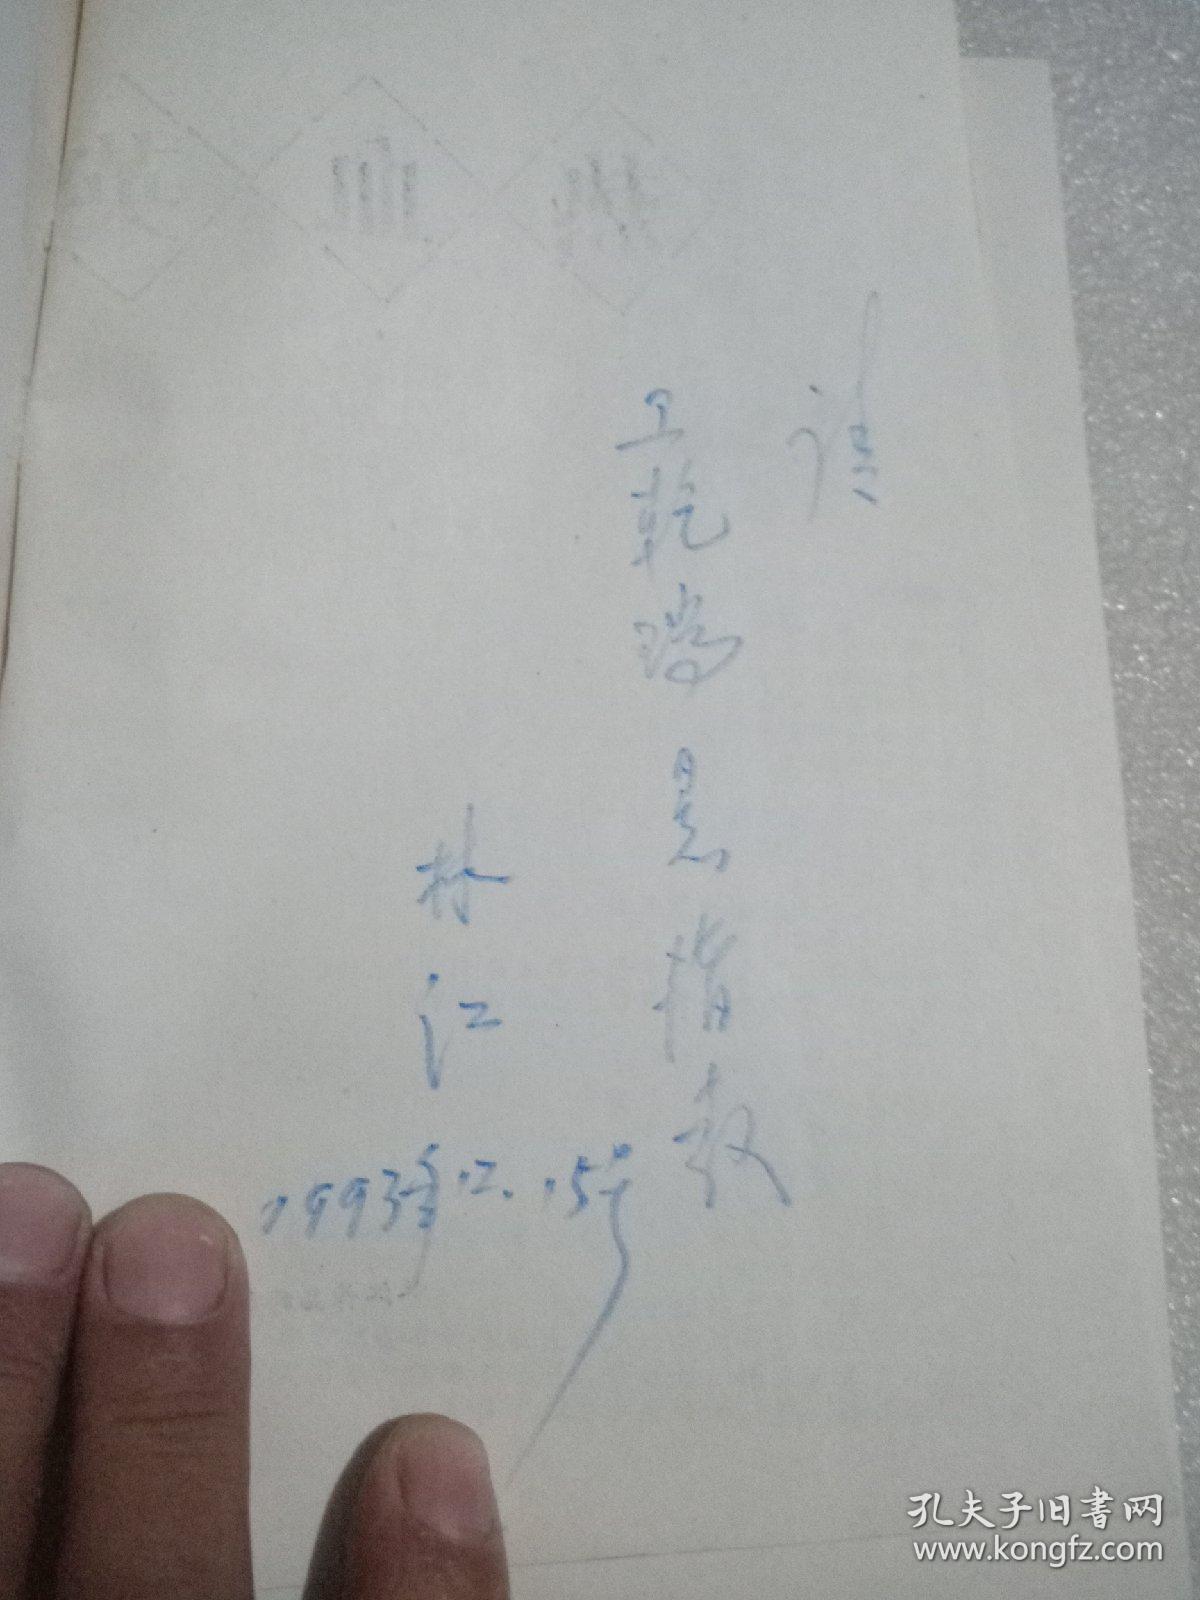 请
王乾瑞
指教
林江
1993年12.15号
孔夫子旧書网
www.kongfz.com